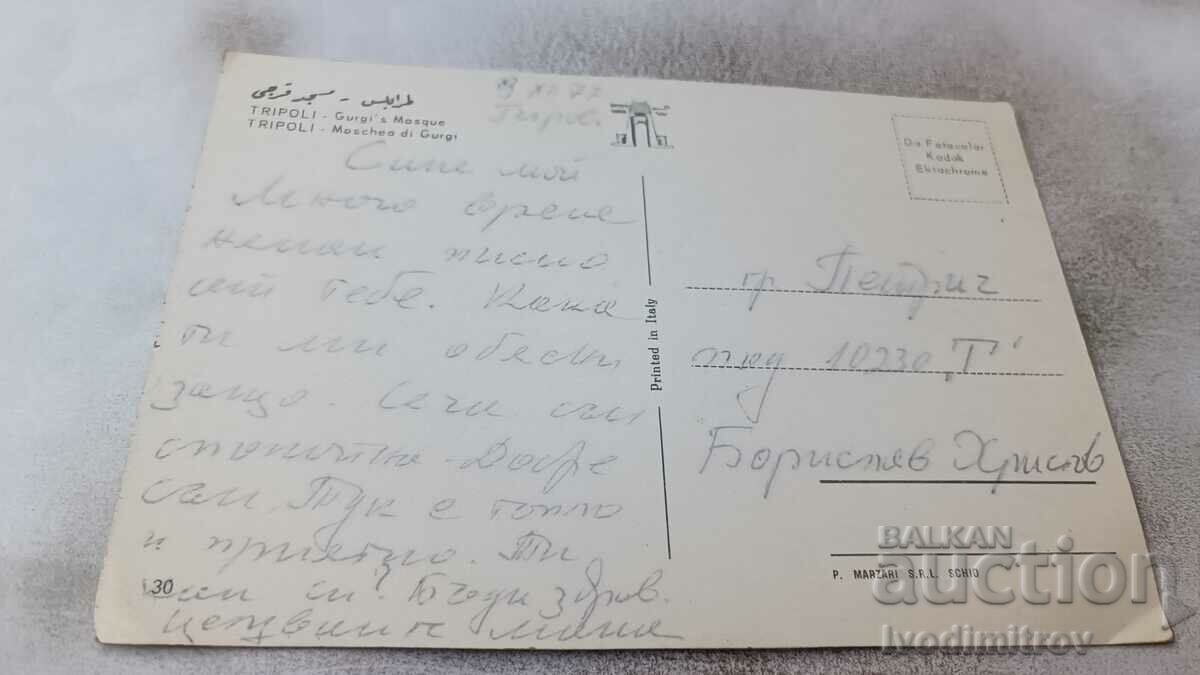 طرابلس - مسجد قرجي
TRIPOLI - Gurgi's Mosque
TRIPOLI - Moschea di Gurgi
XI 77
Сине мой
Много време
немам писмо
от тебе. Кажи
ти ми обясни
защо. Сега съм
спокойна. Добре
съм. Тук е топло
и приятно. Ти
си. Бъди здрав.
мама
30
Printed in Italy
Da Fotocolor
Kodak
Ektachrome
гр Петрич
под 10230 "Г"
Борислав Христов
P. MARZARI S.R.L. SCHIO
BALKAN
auction
ivodimitrov